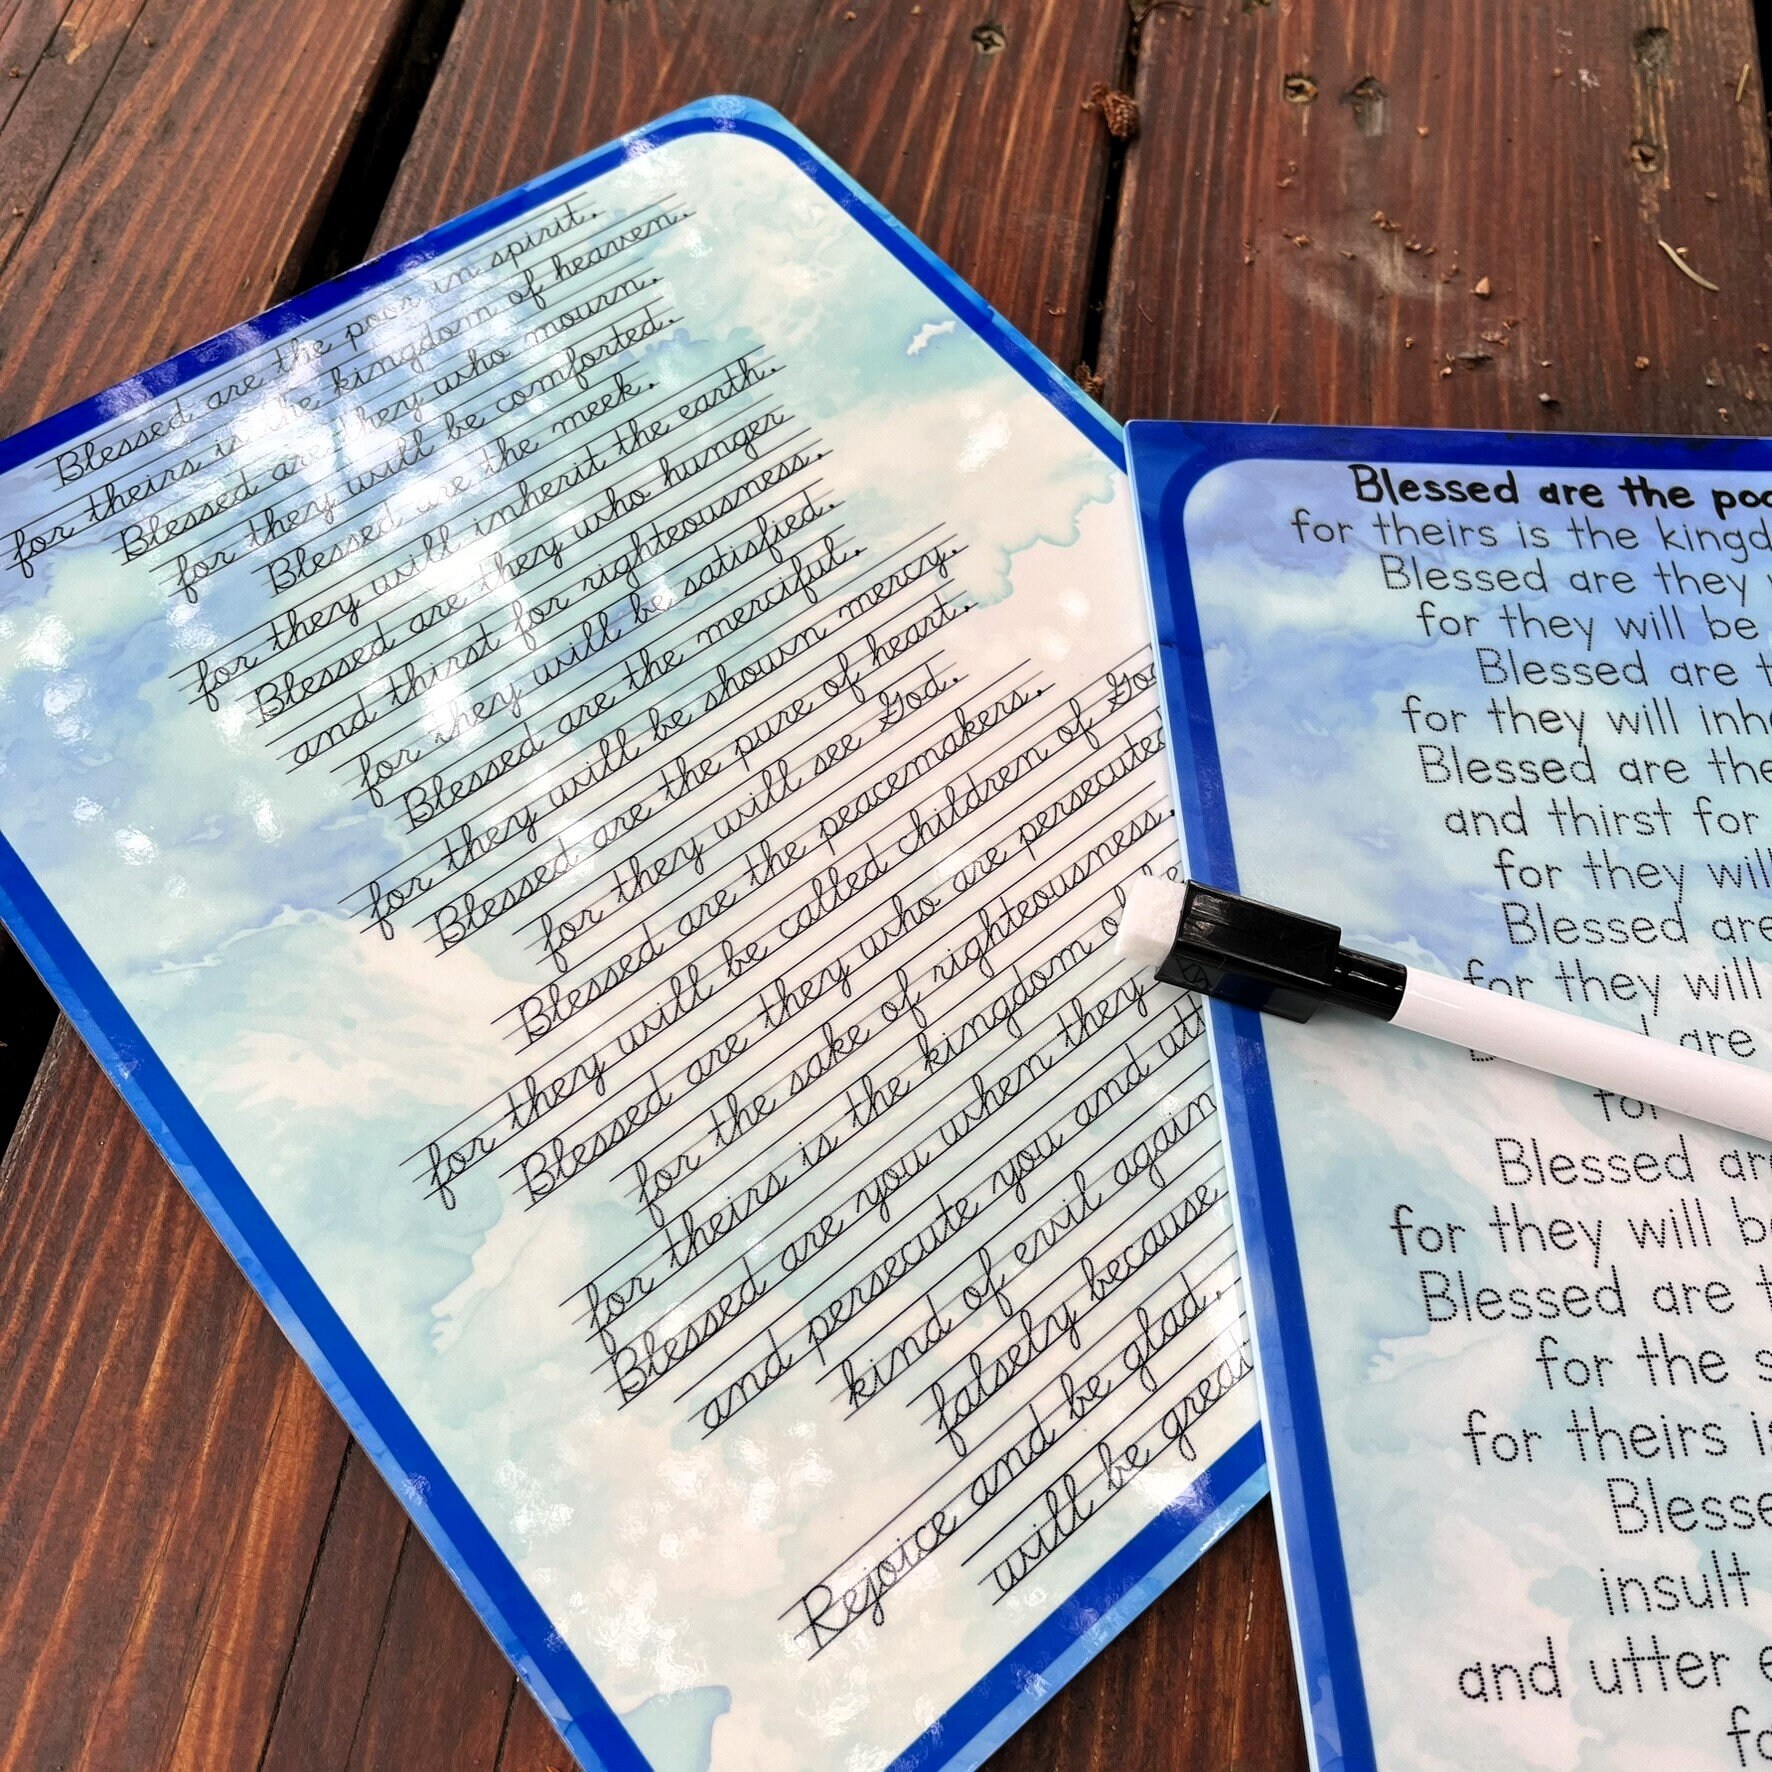 Blessed are the poor in spirit.
for theirs is the kingdom of heaven.
Blessed are they who mourn.
for they will be comforted.
Blessed are the meek.
for they will inherit the earth.
Blessed are they who hunger
and thirst for righteousness.
for they will be satisfied.
Blessed are the merciful.
for they will be shown mercy.
Blessed are the pure of heart.
for they will see God.
Blessed are the peacemakers.
for they will be called children of
Blessed are they who are persecuted
for the sake of righteousness.
for theirs is the kingdom
Blessed are you when they
and persecute you and
kind of evil
falsely because
Rejoice and be glad.
will be great
Blessed are the
for theirs is the
Blessed are they
for they will be
Blessed are
for they will
Blessed are the
and thirst for
for they will
Blessed are
for they will
are
for
Blessed are
for they will
Blessed are
for the
for theirs is
insult
and utter